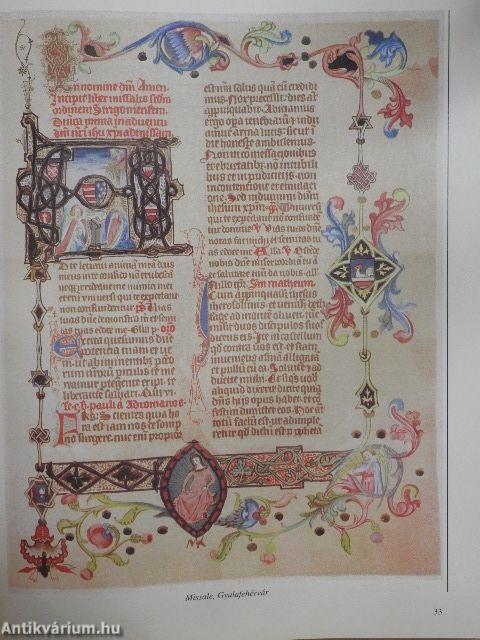 In nomine dni Amen
Incipit liber missalis scdm
ordinem Strigoniensem
Dnica prima in aduentu
dni nri ihu xpi ad missam
D te leuaui animā meā deus
meus in te confido nō erubescā
neqz irrideant me inimici mei
etenim vniuersi qui te expectant
non confundentur
tuas dne demonstra michi et semi
tas tuas edoce me
Excita quesumus dne
potentiā tuam et ve
ni ut ab iminentibz
rum piculis te me
reamur ptegente eripi te
liberāte saluari Qui vi
pauli ad romanos
Frs Scientes quia ho
ra est iam nos de somp
no surgere nūc eni propior
est nrā salus quā cū credidi
mus Nox precessit dies aūt
appropiquabit Abiciamus
ergo opa tenebrarū et indu
amur arma lucis sicut in
die honeste ambulemus
Non in comessacionibus
et ebrietatibz non in cubilibz
et in pudicitijs non
in contentione et emulaci
one Sed induimini dnm
ihesum xpm
qui te expectant non confundē
tur domine Vias tuas dne
notas fac michi et semitas
tuas edoce me Alla Ostēde
nobis dne misericordiā tuā
et salutare tuū da nobis
Alla Sm matheum
Cum appropinquasset ihesus
iherosolimis et venisset bethfage
ad montē oliueti tūc
misit duos discipulos suos
dicens eis Ite in castellum
qd contra vos est et statim
inuenietis asinā alligatā et
pullū cū ea Soluite et ad
ducite michi Et si qs vobis
aliquid dixerit dicite quia
dns hijs opus habet et con
festim dimittet eos Hoc aūt
totū factū est ut adimple
retur qd dictū est p prophetā
Missale, Gyulafehérvár
33
Antikvárium.hu